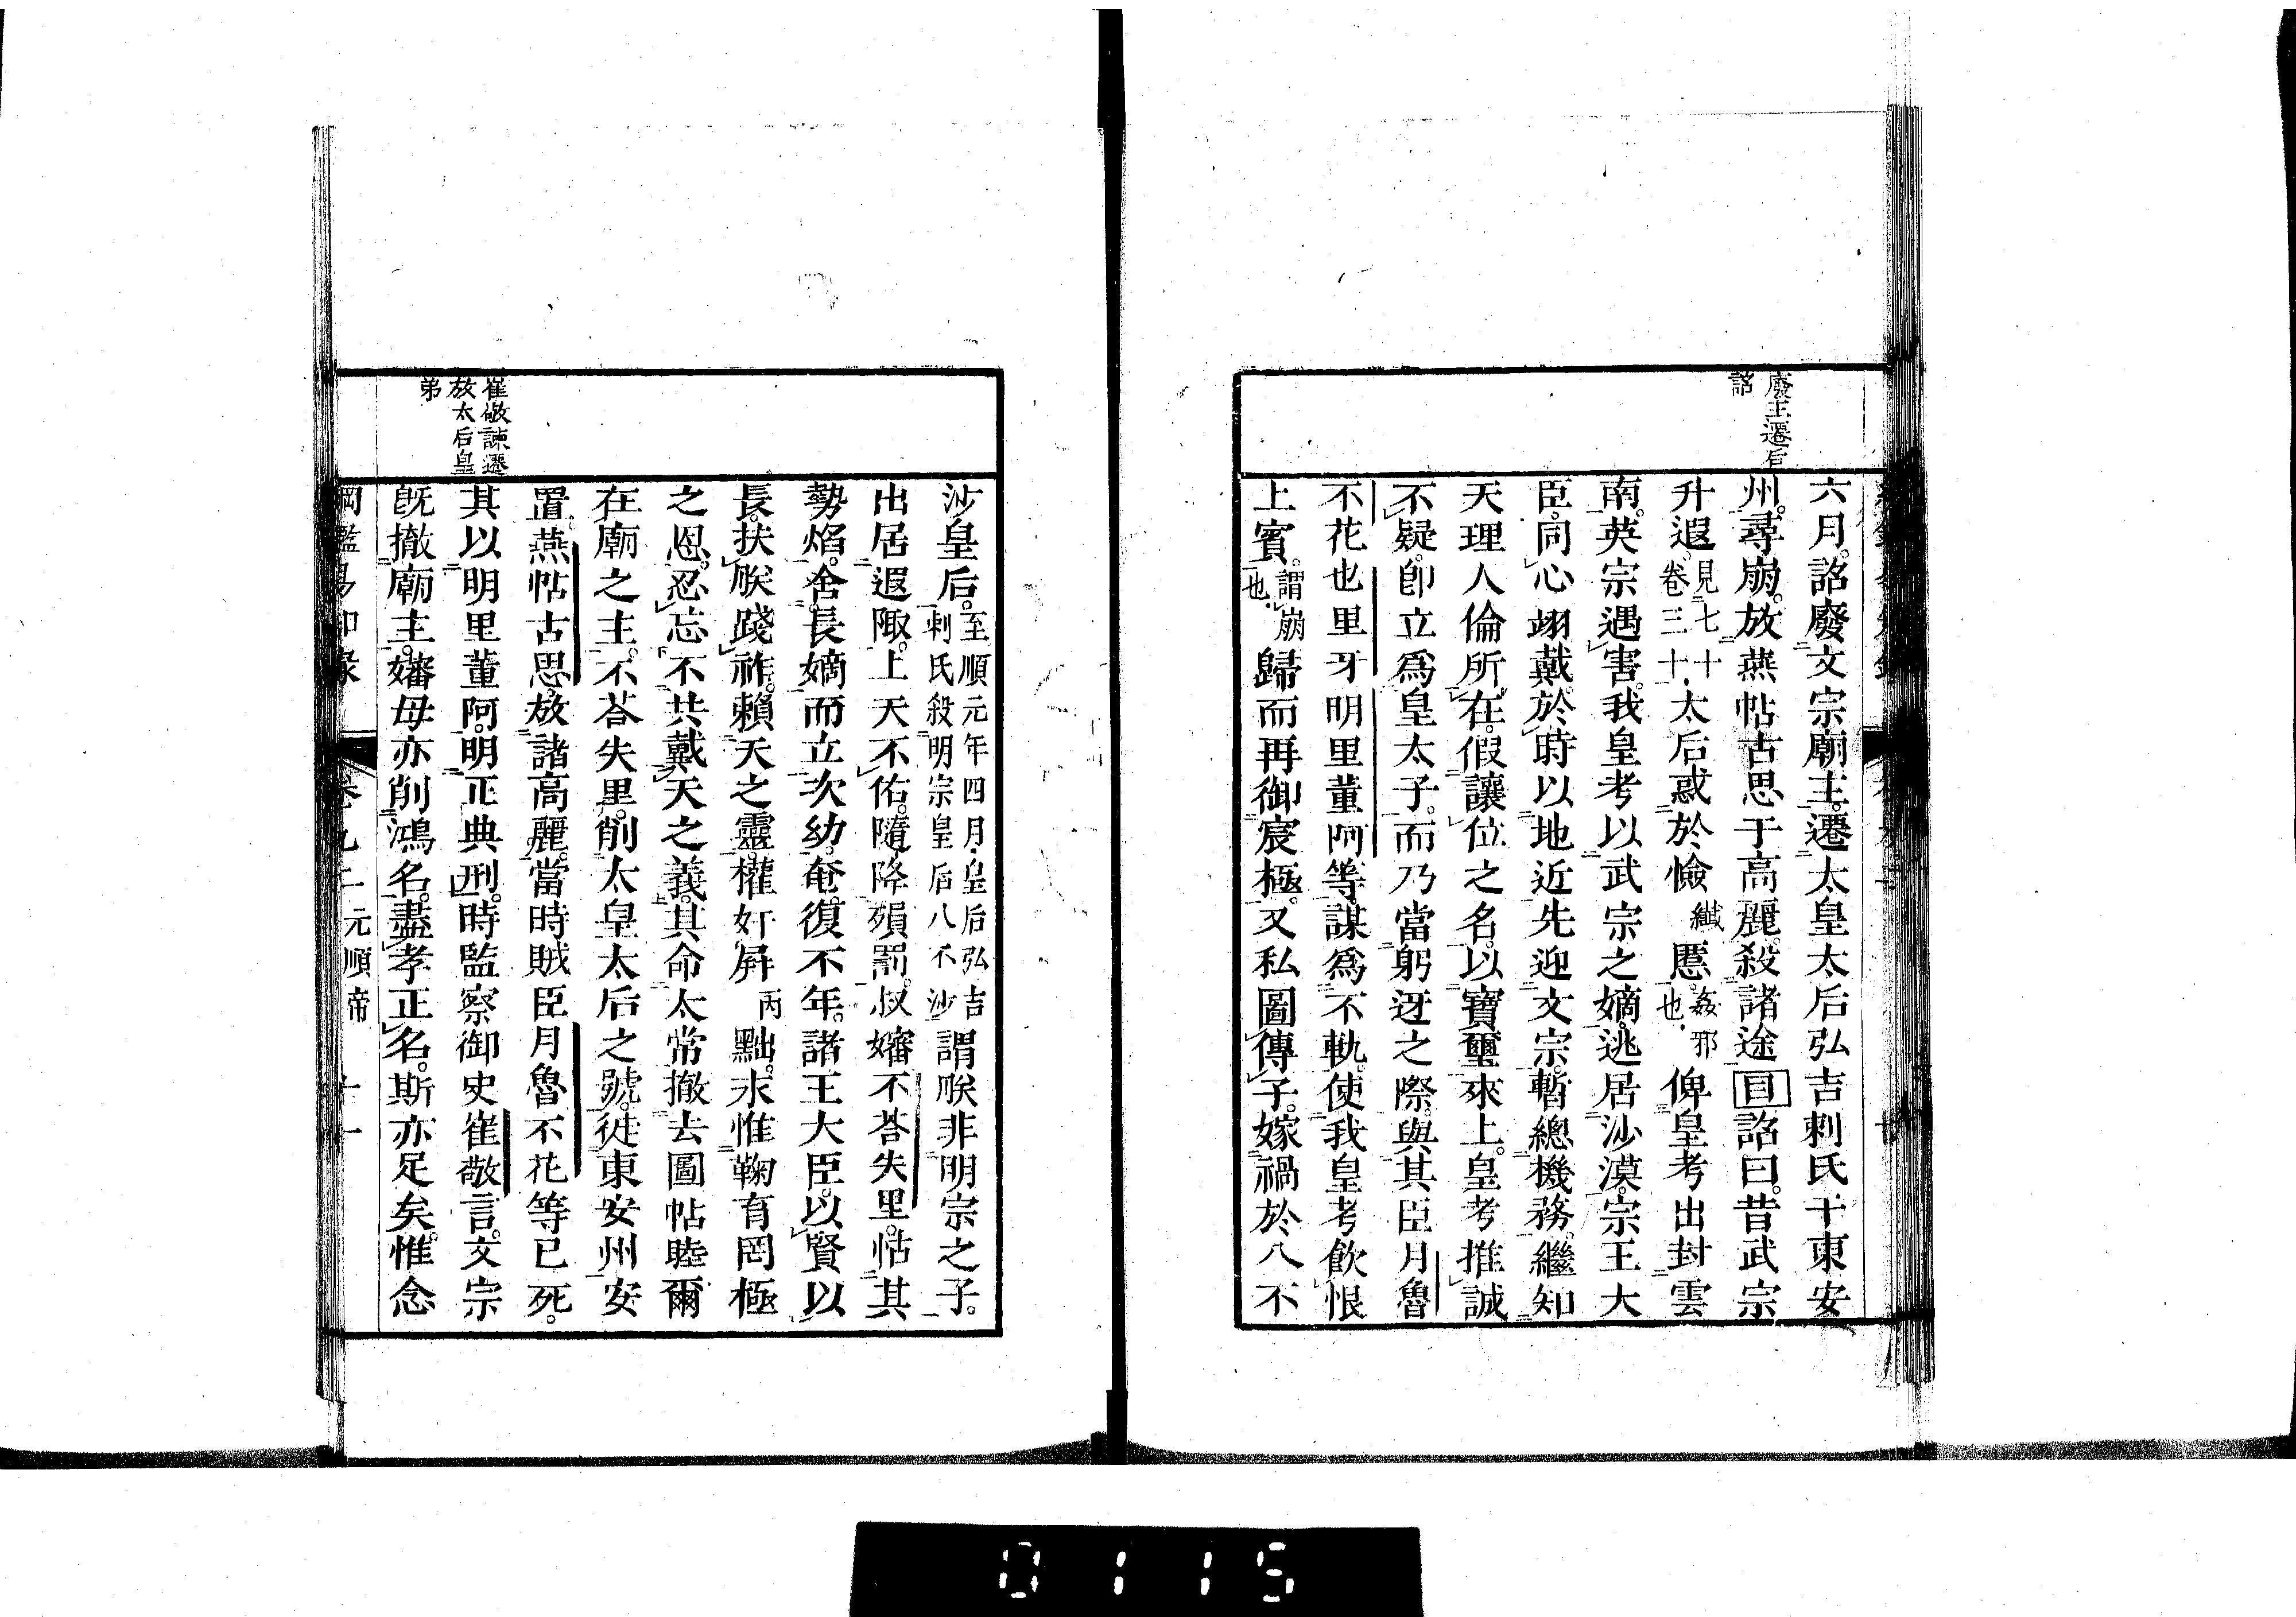 廢主遷后
詔
六月。詔廢文宗廟主。遷太皇太后弘吉剌氏于東安
州。尋崩。放燕帖古思于高麗。殺諸途目詔曰。昔武宗
升遐。見七十卷三十。太后惑於憸纖慝。姦邪也。俾皇考出封雲
南。英宗遇害。我皇考以武宗之嫡。逃居沙漠。宗王大
臣。同心翊戴。於時以地近先迎文宗。暫總機務。繼知
天理人倫所在。假讓位之名。以寶璽來上。皇考推誠
不疑。卽立爲皇太子。而乃當躬迓之際。與其臣月魯
不花也里牙明里董阿等。謀爲不軌。使我皇考飲恨
上賓。謂崩也。歸而再御宸極。又私圖傳子。嫁禍於八不
沙皇后。至順元年四月。皇后弘吉剌氏殺明宗皇后八不沙謂朕非明宗之子。
出居遐陬。上天不佑。隨降殞罰。叔嬸不荅失里。怙其
勢焰。舍長嫡而立次幼。奄復不年。諸王大臣。以賢以
長。扶朕踐祚。賴天之靈。權奸屏丙黜。永惟鞠有罔極
之恩。忍忘不共戴天之義。其命太常撤去圖帖睦爾
在廟之主。不荅失里。削太皇太后之號。徙東安州安
置。燕帖古思。放諸高麗。當時賊臣月魯不花等已死。
其以明里董阿。明正典刑。時監察御史崔敬言。文宗
旣撤廟主。嬸母亦削鴻名。盡孝正名。斯亦足矣。惟念
崔敬諫遷
放太后皇
弟
卷九二 元順帝 十一
0115